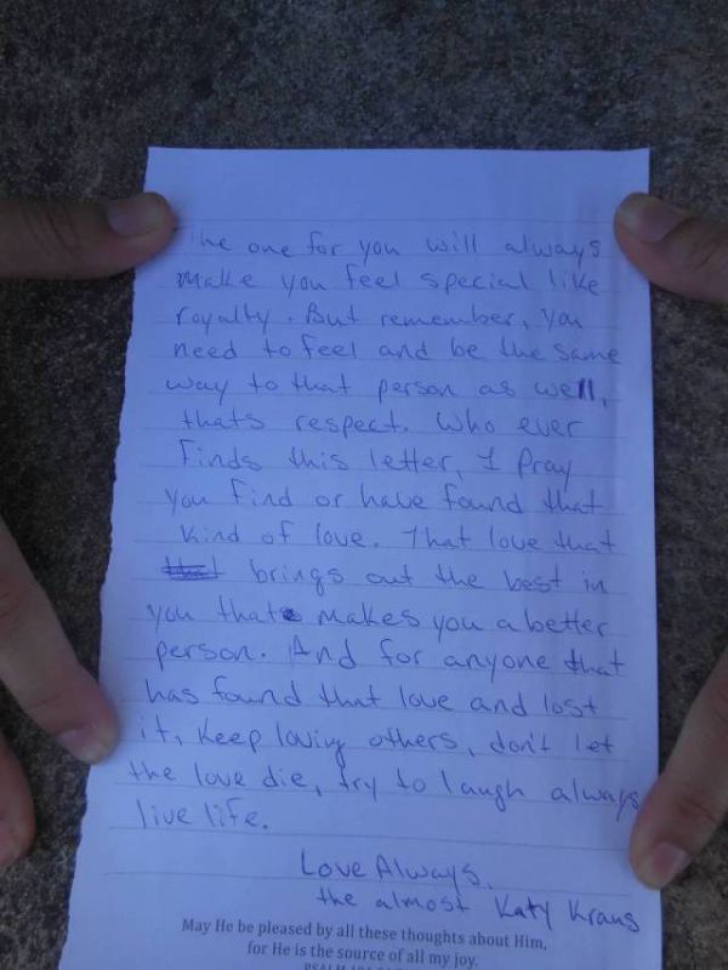 The one for you will always
make you feel special like
royalty. But remember, you
need to feel and be the same
way to that person as well,
thats respect. Who ever
finds this letter, I pray
you find or have found that
kind of love. That love that
brings out the best in
you that makes you a better
person. And for anyone that
has found that love and lost
it, keep loving others, don't let
the love die, try to laugh always
live life.
Love Always,
the almost Katy Kraus
May He be pleased by all these thoughts about Him,
for He is the source of all my joy.
PSALM